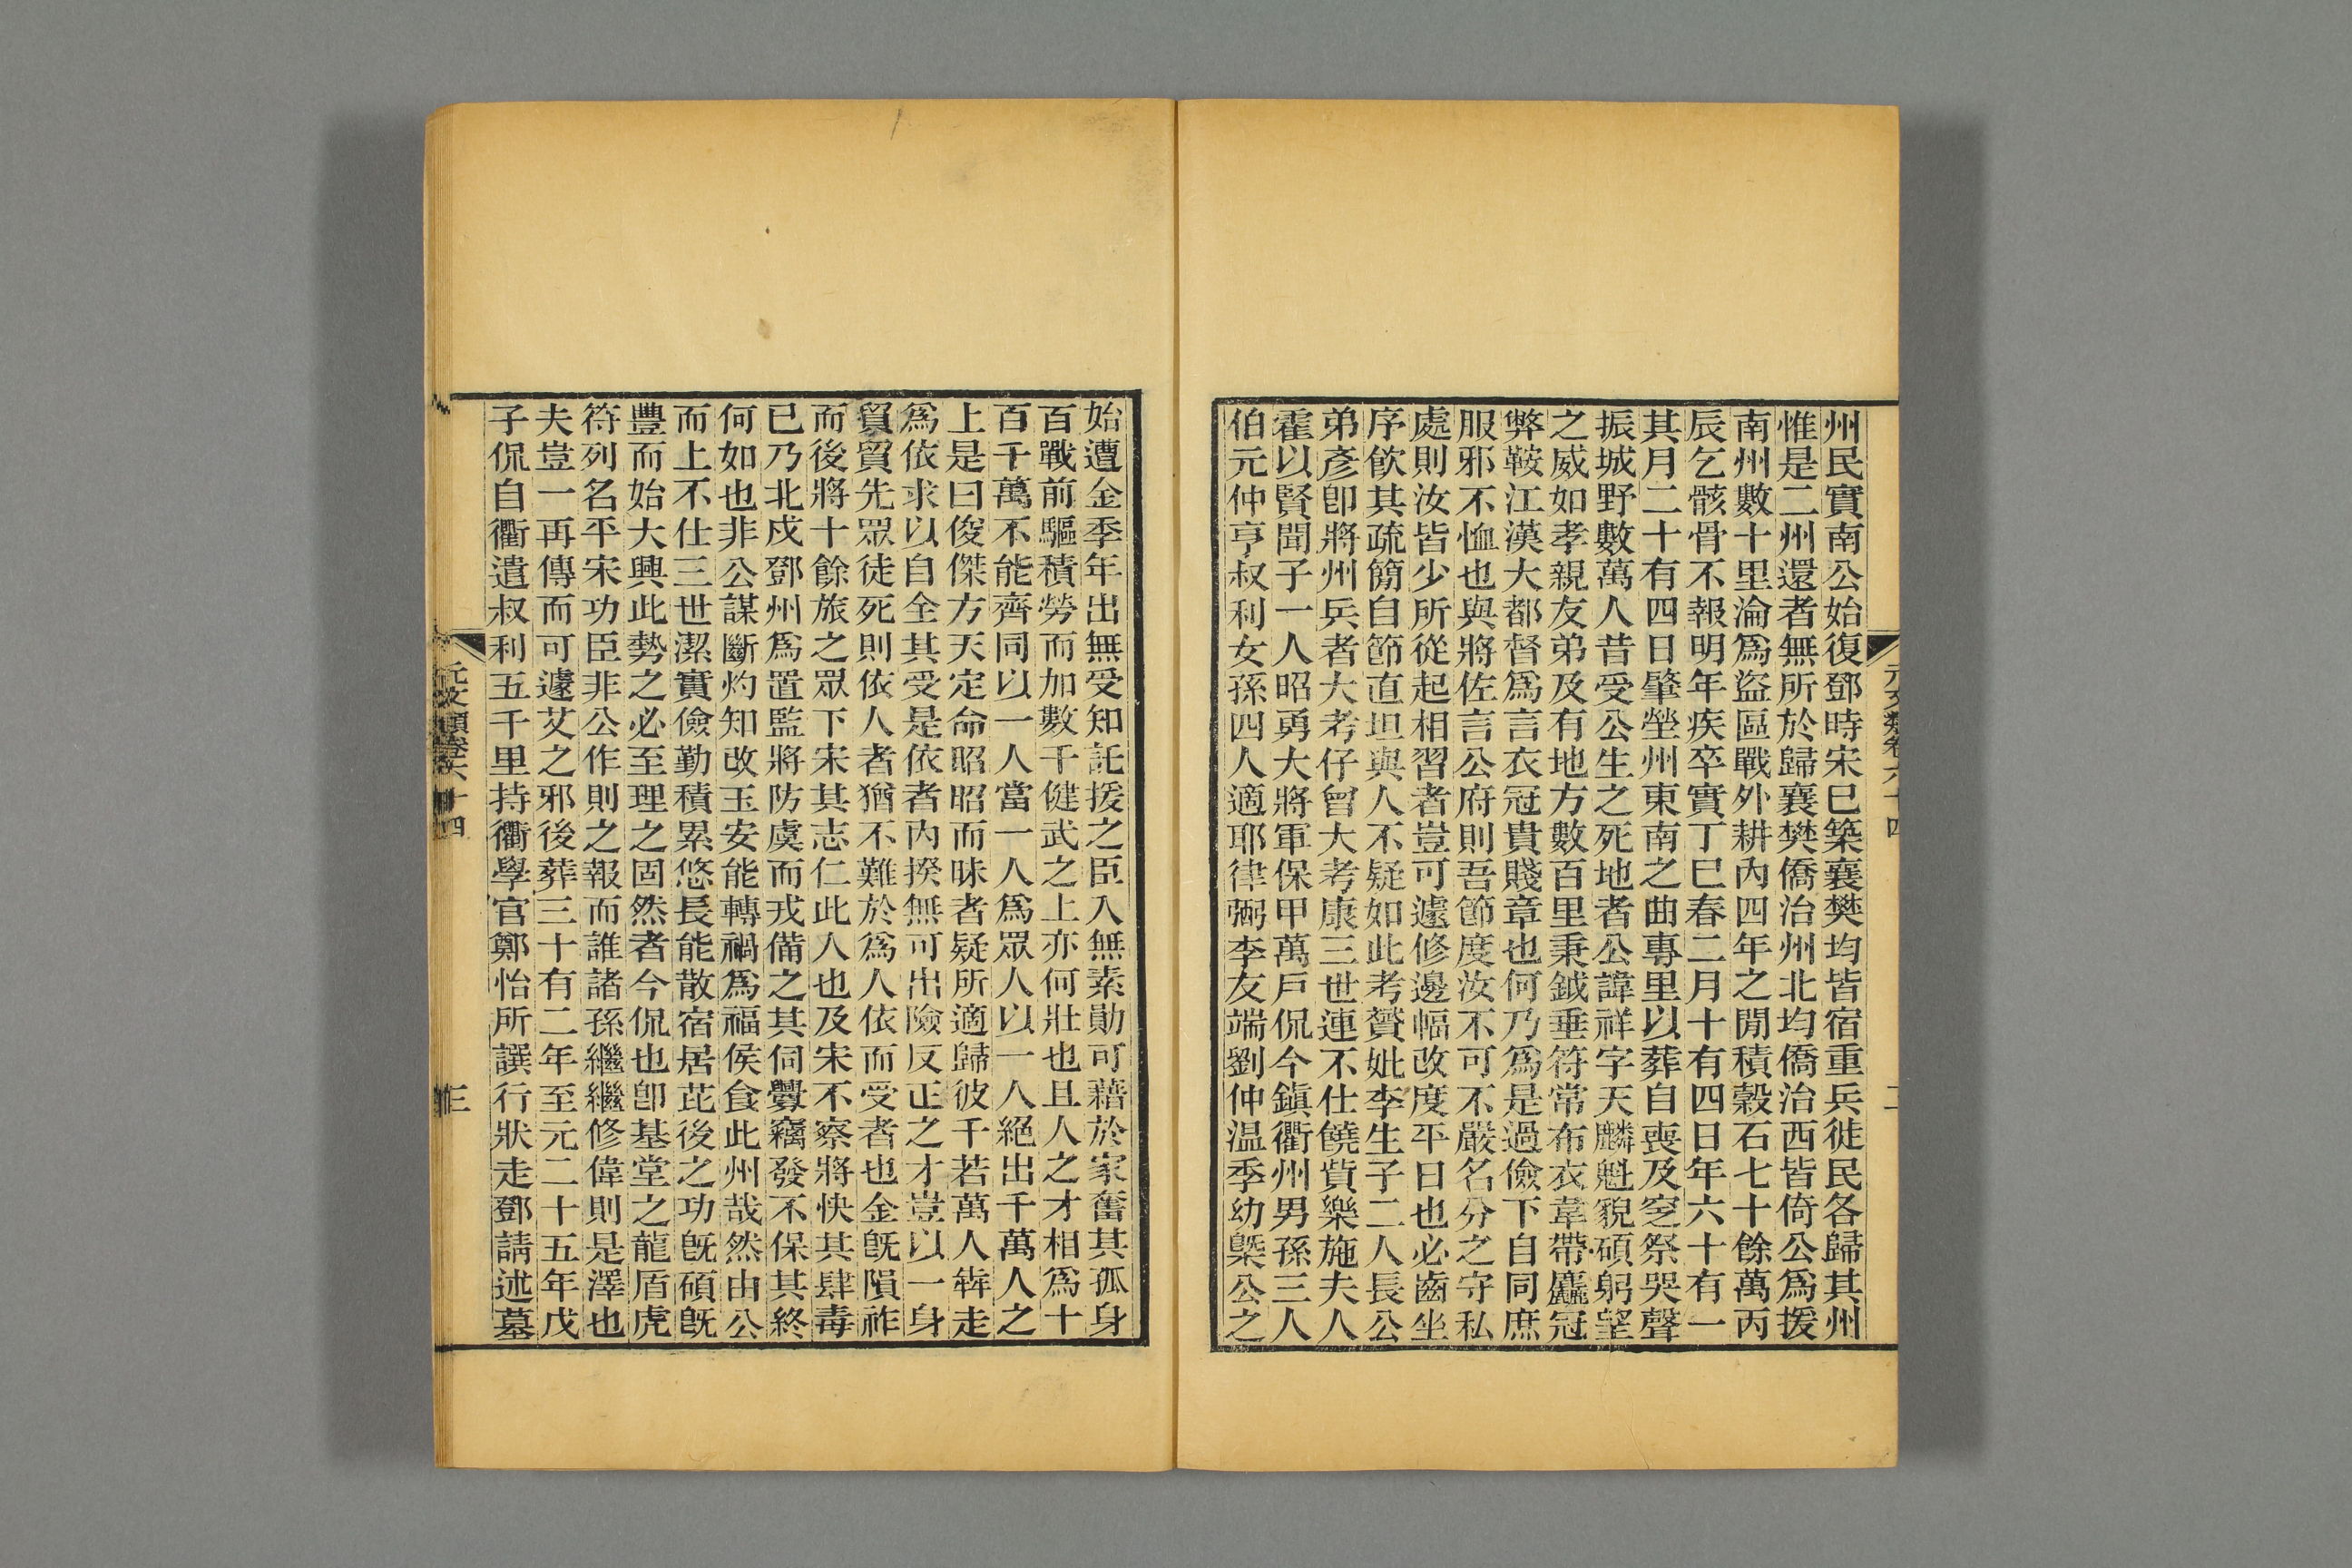 州民實南公始復鄧時宋巳築襄樊均皆宿重兵徙民各歸其州
惟是二州還者無所於歸襄樊僑治州北均僑治西皆倚公爲援
南州數十里淪爲盜區戰外耕內四年之閒積穀石七十餘萬丙
辰乞骸骨不報明年疾卒實丁巳春二月十有四日年六十有一
其月二十有四日肇塋州東南之曲專里以葬自喪及窆祭哭聲
振城野數萬人昔受公生之死地者公諱祥字天麟魁貌碩躬望
之威如孝親友弟及有地方數百里秉鉞垂符常布衣韋帶麤冠
弊鞍江漢大都督爲言衣冠貴賤章也何乃爲是過儉下自同庶
服邪不恤也與將佐言公府則吾節度汝不可不嚴名分之守私
處則汝皆少所從起相習者豈可遽修邊幅改度平日也必齒坐
序飮其疏簡自節直坦與人不疑如此考贇妣李生子二人長公
弟彥卽將州兵者大考仔曾大考康三世連不仕饒貲樂施夫人
霍以賢聞子一人昭勇大將軍保甲萬戶侃今鎭衢州男孫三人
伯元仲亨叔利女孫四人適耶律弼李友端劉仲温季幼槩公之
元文類卷六十四
二
始遭金季年出無受知託援之臣入無素勛可藉於家奮其孤身
百戰前驅積勞而加數千健武之上亦何壯也且人之才相爲十
百千萬不能齊同以一人當一人爲眾人以一人絕出千萬人之
上是曰俊傑方天定命昭昭而昧者疑所適歸彼千若萬人犇走
爲依求以自全其受是依者內揆無可出險反正之才豈以一身
貿貿先眾徒死則依人者猶不難於爲人依而受者也金旣隕祚
而後將十餘旅之眾下宋其志仁此人也及宋不察將快其肆毒
已乃北戍鄧州爲置監將防虞而戎備之其伺釁竊發不保其終
何如也非公謀斷灼知改玉安能轉禍爲福侯食此州哉然由公
而上不仕三世潔實儉勤積累悠長能散宿居芘後之功旣碩旣
豐而始大興此勢之必至理之固然者今侃也卽基堂之龍盾虎
符列名平宋功臣非公作則之報而誰諸孫繼繼修偉則是澤也
夫豈一再傳而可遽艾之邪後葬三十有二年至元二十五年戊
子侃自衢遣叔利五千里持衢學官鄭怡所譔行狀走鄧請述墓
元文類卷六十四
三